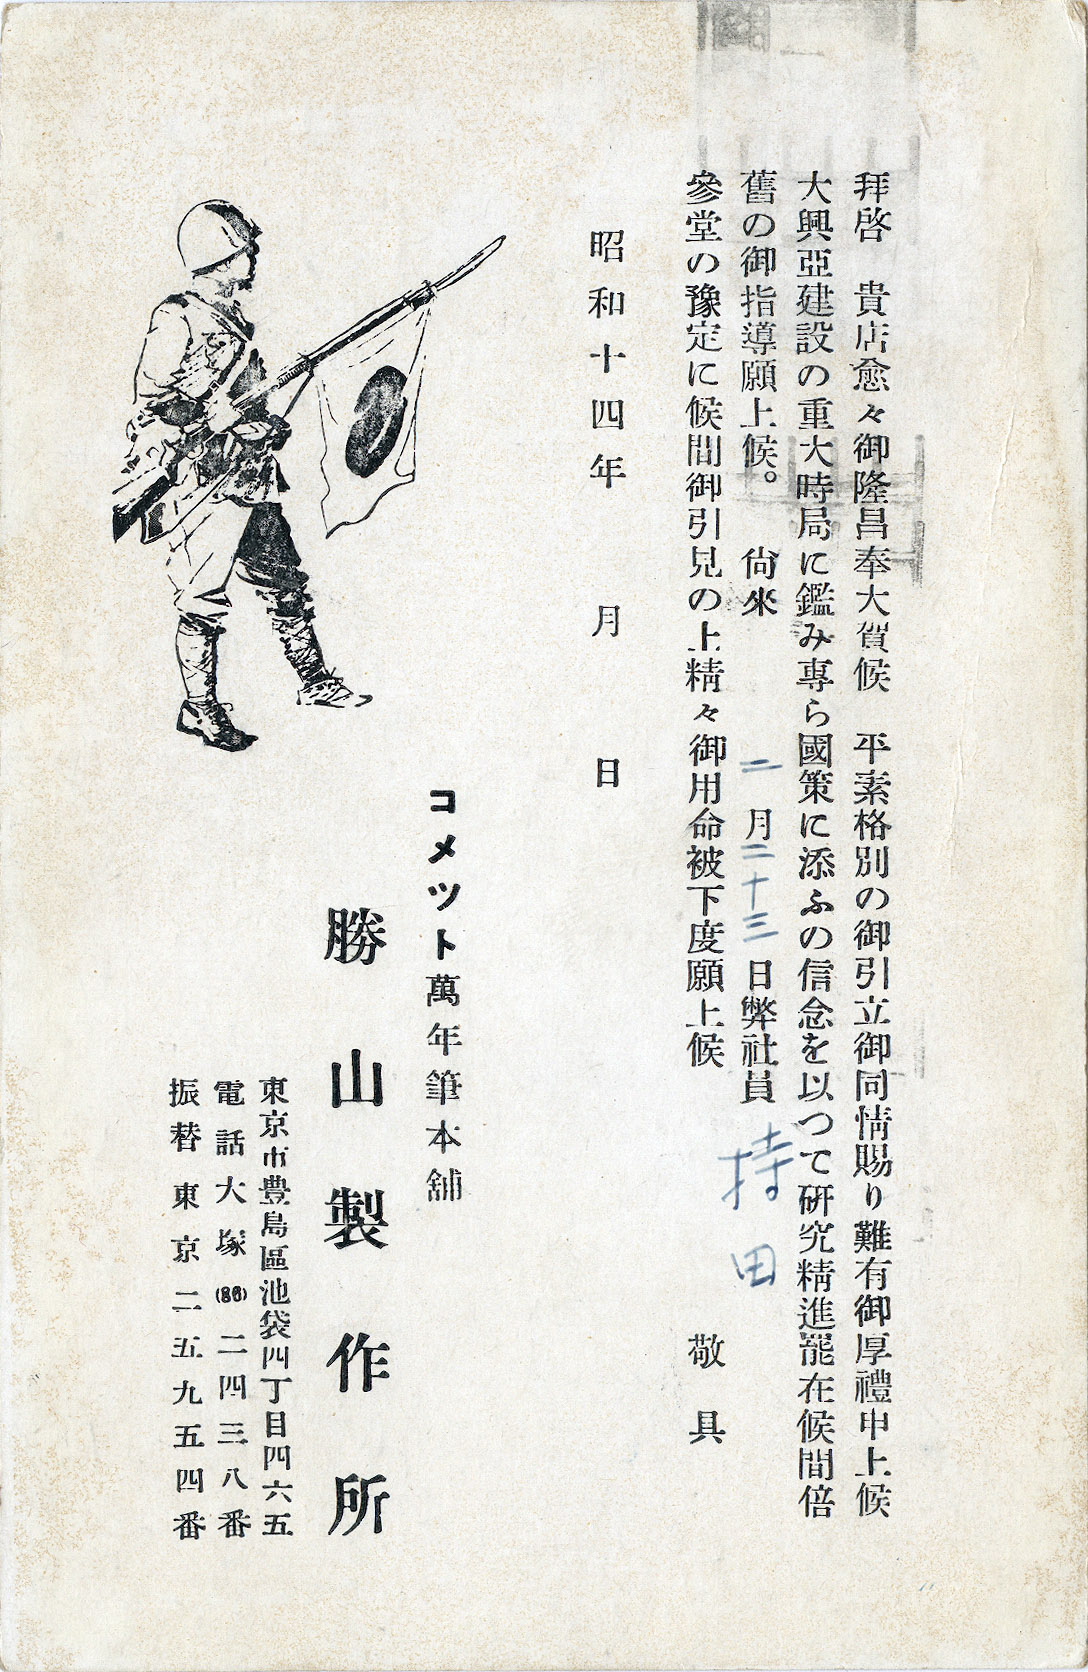 拜啓　貴店愈々御隆昌奉大賀候　平素格別の御引立御同情賜り難有御厚禮申上候
大興亞建設の重大時局に鑑み專ら國策に添ふの信念を以つて硏究精進罷在候間倍
舊の御指導願上候。　尙來　二月二十三日弊社員　持田
參堂の豫定に候間御引見の上精々御用命被下度願上候　敬具
昭和十四年　月　日
コメツト萬年筆本舖
勝山製作所
東京市豊島區池袋四丁目四六五
電話大塚(86)二四三八番
振替東京二五九五四番